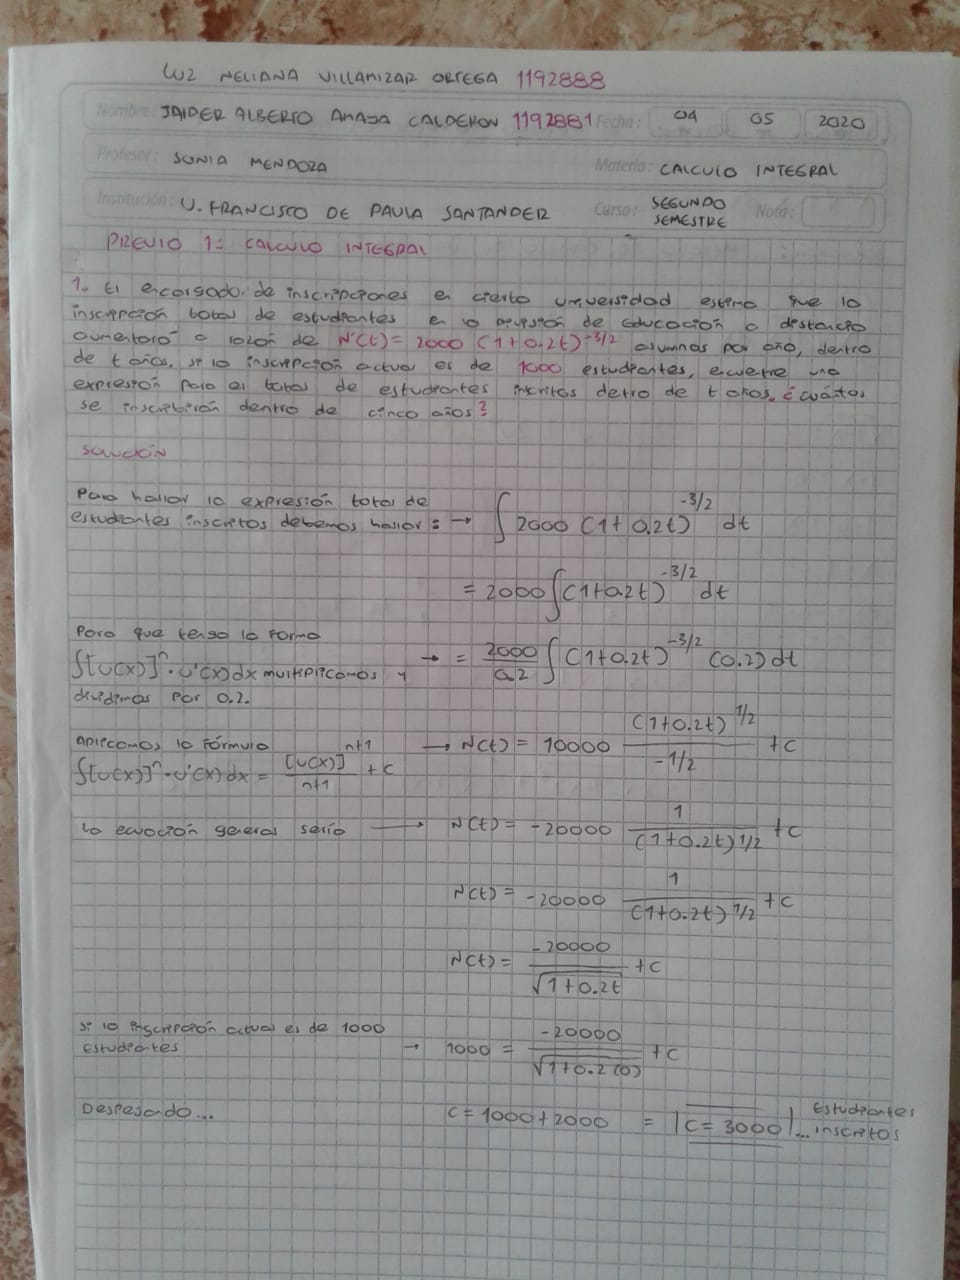 LUZ MELIANA VILLAMIZAR ORTEGA 1192888
Nombre: JAIDER ALBERTO AMAYA CALDERON 1192881 Fecha: 04 05 2020
Profesor: SONIA MENDOZA Materia: CALCULO INTEGRAL
Institución: U. FRANCISCO DE PAULA SANTANDER Curso: SEGUNDO SEMESTRE Nota:
PREVIO 1: CALCULO INTEGRAL
1. El encargado de inscripciones en cierta universidad estima que la
inscripción total de estudiantes en la división de educación a distancia
aumentará a razón de N'(t) = 2000 (1+0.2t)^-3/2 alumnos por año, dentro
de t años, si la inscripción actual es de 1000 estudiantes, encuetre una
expresión para el total de estudiantes inscritos detro de t años. ¿cuántos
se inscribirán dentro de cinco años?
SOLUCIÓN
Para hallar la expresión total de
estudiantes inscritos debemos hallar: → ∫ 2000 (1+0.2t)^-3/2 dt
= 2000 ∫(1+0.2t)^-3/2 dt
Para que tenga la forma
∫[u(x)]^n · u'(x) dx multiplicamos y → = 2000/0.2 ∫(1+0.2t)^-3/2 (0.2) dt
dividimos por 0.2.
Aplicamos la fórmula → N(t) = 10000 (1+0.2t)^1/2 / -1/2 + C
∫[u(x)]^n · u'(x) dx = [u(x)]^n+1 / n+1 + C
La ecuación general sería → N(t) = -20000 1/(1+0.2t)^1/2 + C
N(t) = -20000 1/(1+0.2t)^1/2 + C
N(t) = -20000/√1+0.2t + C
Si la inscripción actual es de 1000
Estudiantes → 1000 = -20000/√1+0.2(0) + C
Despejando... C = 1000+2000 = |C = 3000|... Estudiantes inscritos